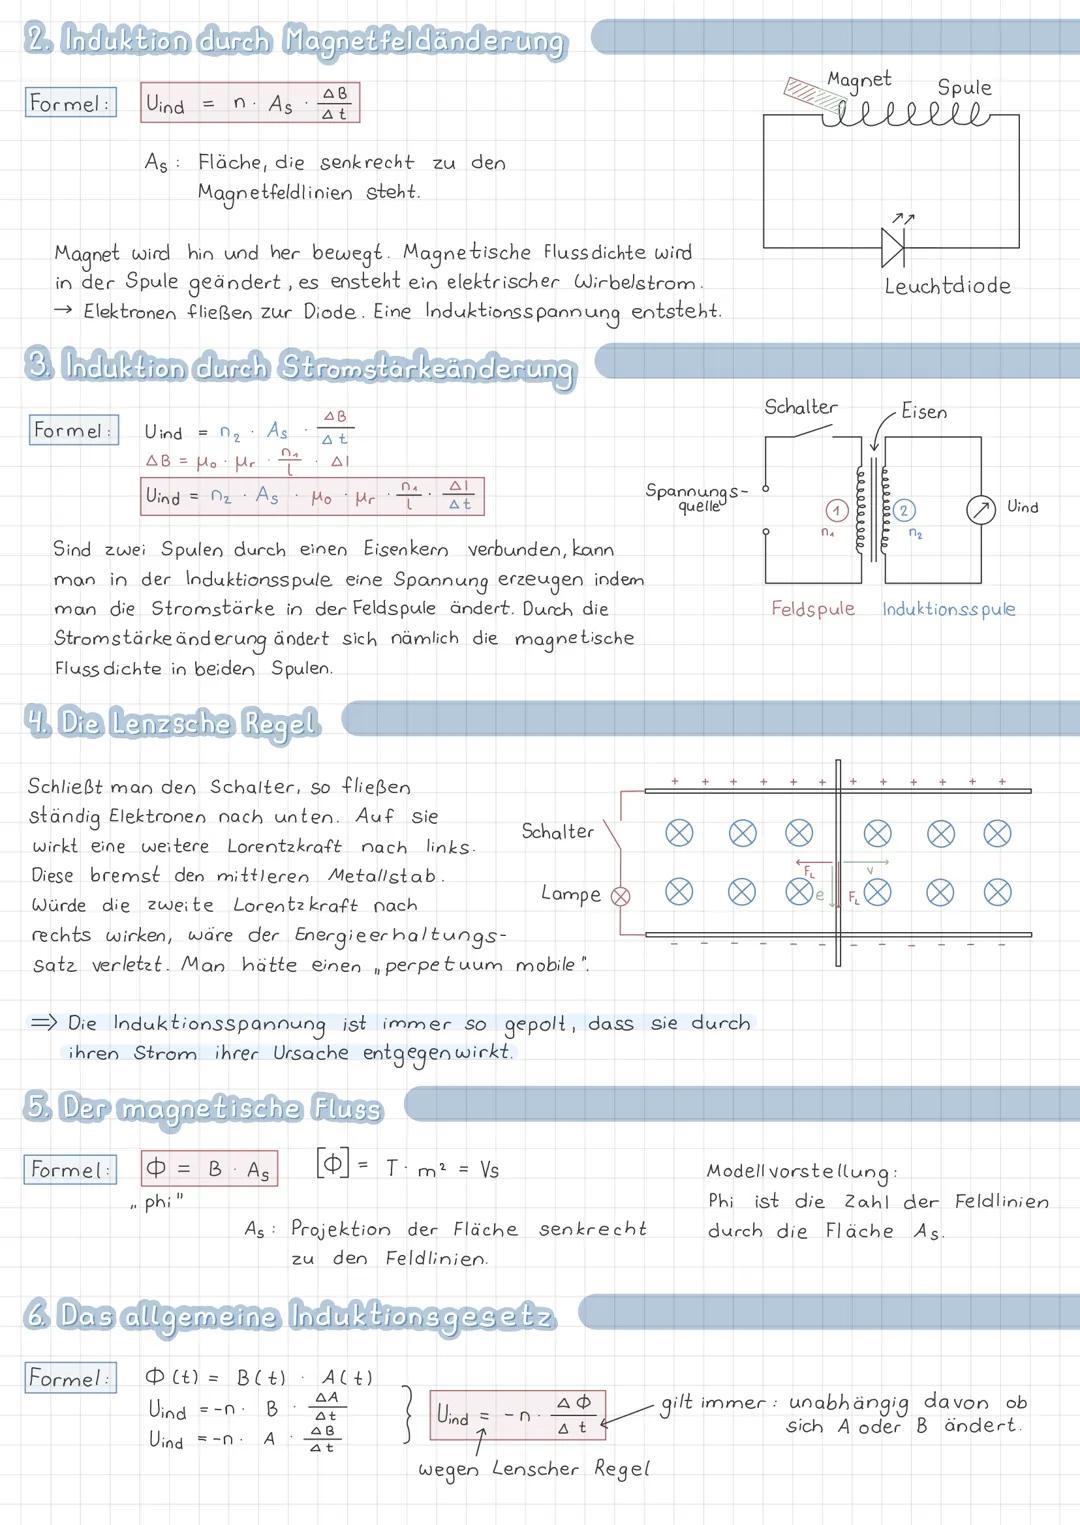 2. Induktion durch Magnetfeldänderung
Formel: Uind = n · As · ΔB/Δt
As: Fläche, die senkrecht zu den
Magnetfeldlinien steht.
Magnet Spule
Leuchtdiode
Magnet wird hin und her bewegt. Magnetische Flussdichte wird
in der Spule geändert, es ensteht ein elektrischer Wirbelstrom.
→ Elektronen fließen zur Diode. Eine Induktionsspannung entsteht.
3. Induktion durch Stromstärkeänderung
Formel: Uind = n₂ · As · ΔB/Δt
ΔB = μ₀ · μr · n₁/l · ΔI
Uind = n₂ · As · μ₀ · μr · n₁/l · ΔI/Δt
Schalter Eisen
Spannungs-
quelle
1 2
n₁ n₂
Uind
Feldspule Induktionsspule
Sind zwei Spulen durch einen Eisenkern verbunden, kann
man in der Induktionsspule eine Spannung erzeugen indem
man die Stromstärke in der Feldspule ändert. Durch die
Stromstärkeänderung ändert sich nämlich die magnetische
Flussdichte in beiden Spulen.
4. Die Lenzsche Regel
Schließt man den Schalter, so fließen
ständig Elektronen nach unten. Auf sie
wirkt eine weitere Lorentzkraft nach links.
Diese bremst den mittleren Metallstab.
Würde die zweite Lorentzkraft nach
rechts wirken, wäre der Energieerhaltungs-
satz verletzt. Man hätte einen „perpetuum mobile".
+ + + + + + + + + + + +
Schalter
Lampe
FL v
e FL
- - - - - - - - - - - -
⇒ Die Induktionsspannung ist immer so gepolt, dass sie durch
ihren Strom ihrer Ursache entgegenwirkt.
5. Der magnetische Fluss
Formel: Φ = B · As [Φ] = T · m² = Vs
„phi"
As: Projektion der Fläche senkrecht
zu den Feldlinien.
Modellvorstellung:
Phi ist die Zahl der Feldlinien
durch die Fläche As.
6. Das allgemeine Induktionsgesetz
Formel: Φ(t) = B(t) · A(t)
Uind = -n · B · ΔA/Δt
Uind = -n · A · ΔB/Δt
Uind = -n · ΔΦ/Δt
gilt immer: unabhängig davon ob
sich A oder B ändert.
wegen Lenscher Regel